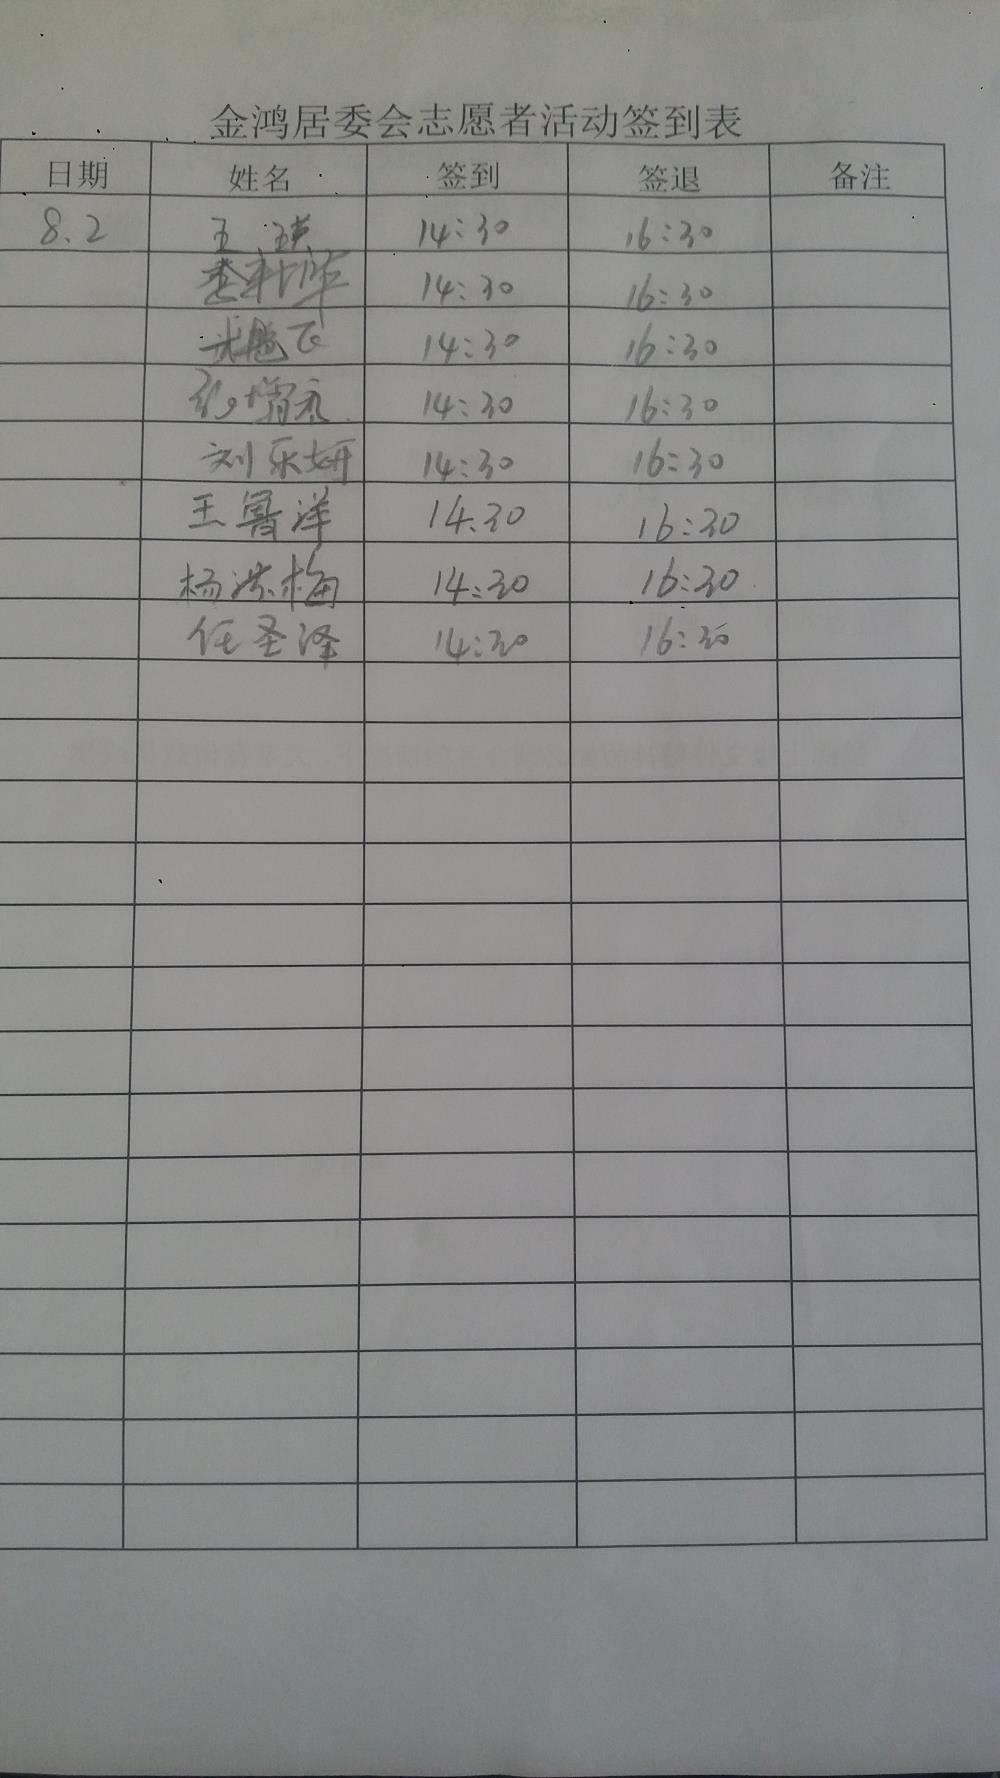 金鸿居委会志愿者活动签到表
日期 姓名 签到 签退 备注
8.2 王瑛 14:30 16:30
14:30 16:30
飞 14:30 16:30
增 14:30 16:30
刘乐妍 14:30 16:30
王鲁洋 14:30 16:30
杨洪梅 14:30 16:30
任圣泽 14:30 16:30